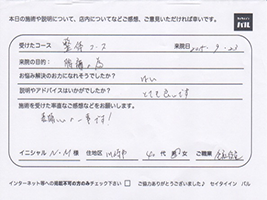 本日の施術や説明について、店内についてなどご感想、ご意見いただければ幸いです。
セイタイイン
バル
受けたコース 整体コース 来院日 2015.9.23
来院の目的: 腰痛の為
お悩み解決のお力になれそうでしたか? はい
説明やアドバイスはいかがでしたか? とても良いです
施術を受けた率直なご感想などをお願いします。
素晴しいの一言です!
イニシャル N・M 様 住地区 川崎市 40代 男 女 ご職業 会社員
インターネット等への掲載不可の方のみチェック下さい □ ご協力ありがとうございました♪ セイタイイン バル